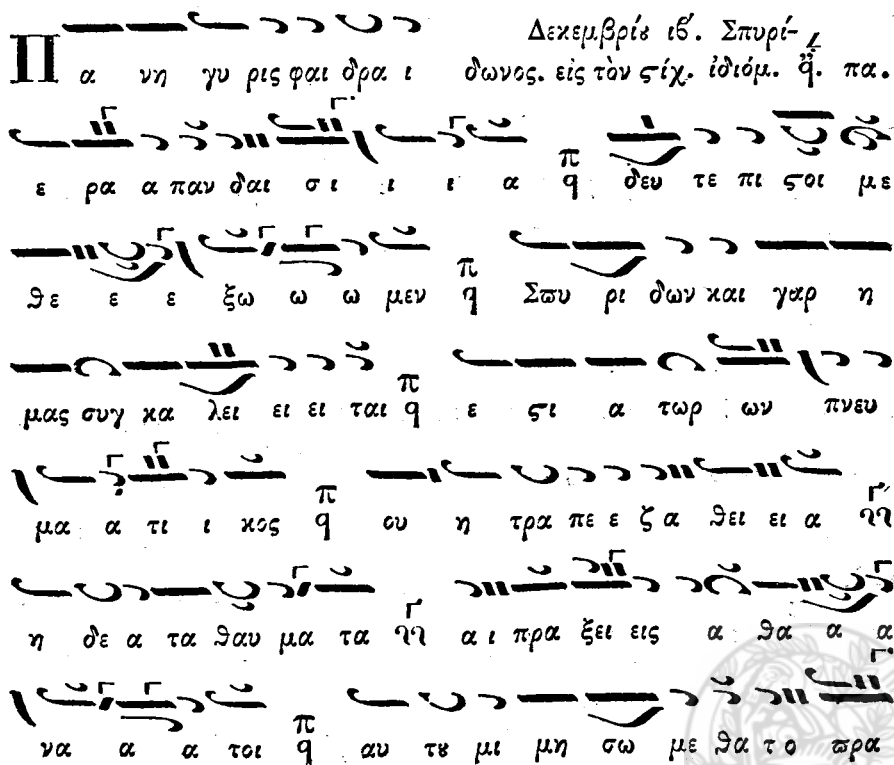 Δεκεμβρίȣ ιϐ. Σπυρί-
δωνος. εἰς τὸν ϛίχ. ἰδιόμ. q̈. πα.
Πα νη γυ ρις φαι δρα ι
ε ρα α παν δαι σι ι ι α π q δευ τε πι ϛοι με
θε ε ε ξω ω ω μεν π q Σπυ ρι δων και γαρ η
μας συγ κα λει ει ει ται π q ε ϛι α τωρ ων πνευ
μα α τι ι κος π q ου η τρα πε ε ζα θει ει α
η δε α τα θαυ μα τα αι πρα ξει εις α θα α α
να α α τοι π q αυ τȣ μι μη σω με θα το πρα